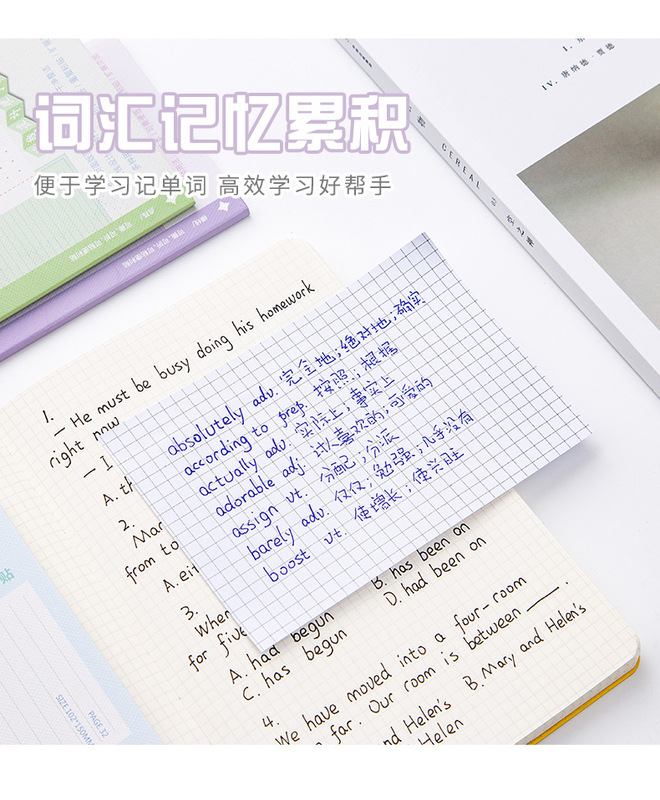 词汇记忆累积
便于学习记单词 高效学习好帮手
I.
IV. 唐纳德·贾德
CEREAL
absolutely adv. 完全地；绝对地；确实
according to prep. 按照；根据
actually adv. 实际上，事实上
adorable adj. 讨人喜欢的，可爱的
assign vt. 分配；分派
barely adv. 仅仅；勉强；几乎没有
boost vt. 使增长；使兴旺
1.
— He must be busy doing his homework
right now
— I
A. th
2.
Mar
from to
A. eit
3.
When
for five
A. had begun
B. has been on
C. has begun
D. had been on
4.
We have moved into a four-room
far. Our room is between ____.
and Helen's
B. Mary and Helen's
Helen
贴
PAGE:32
SIZE:102*150MM